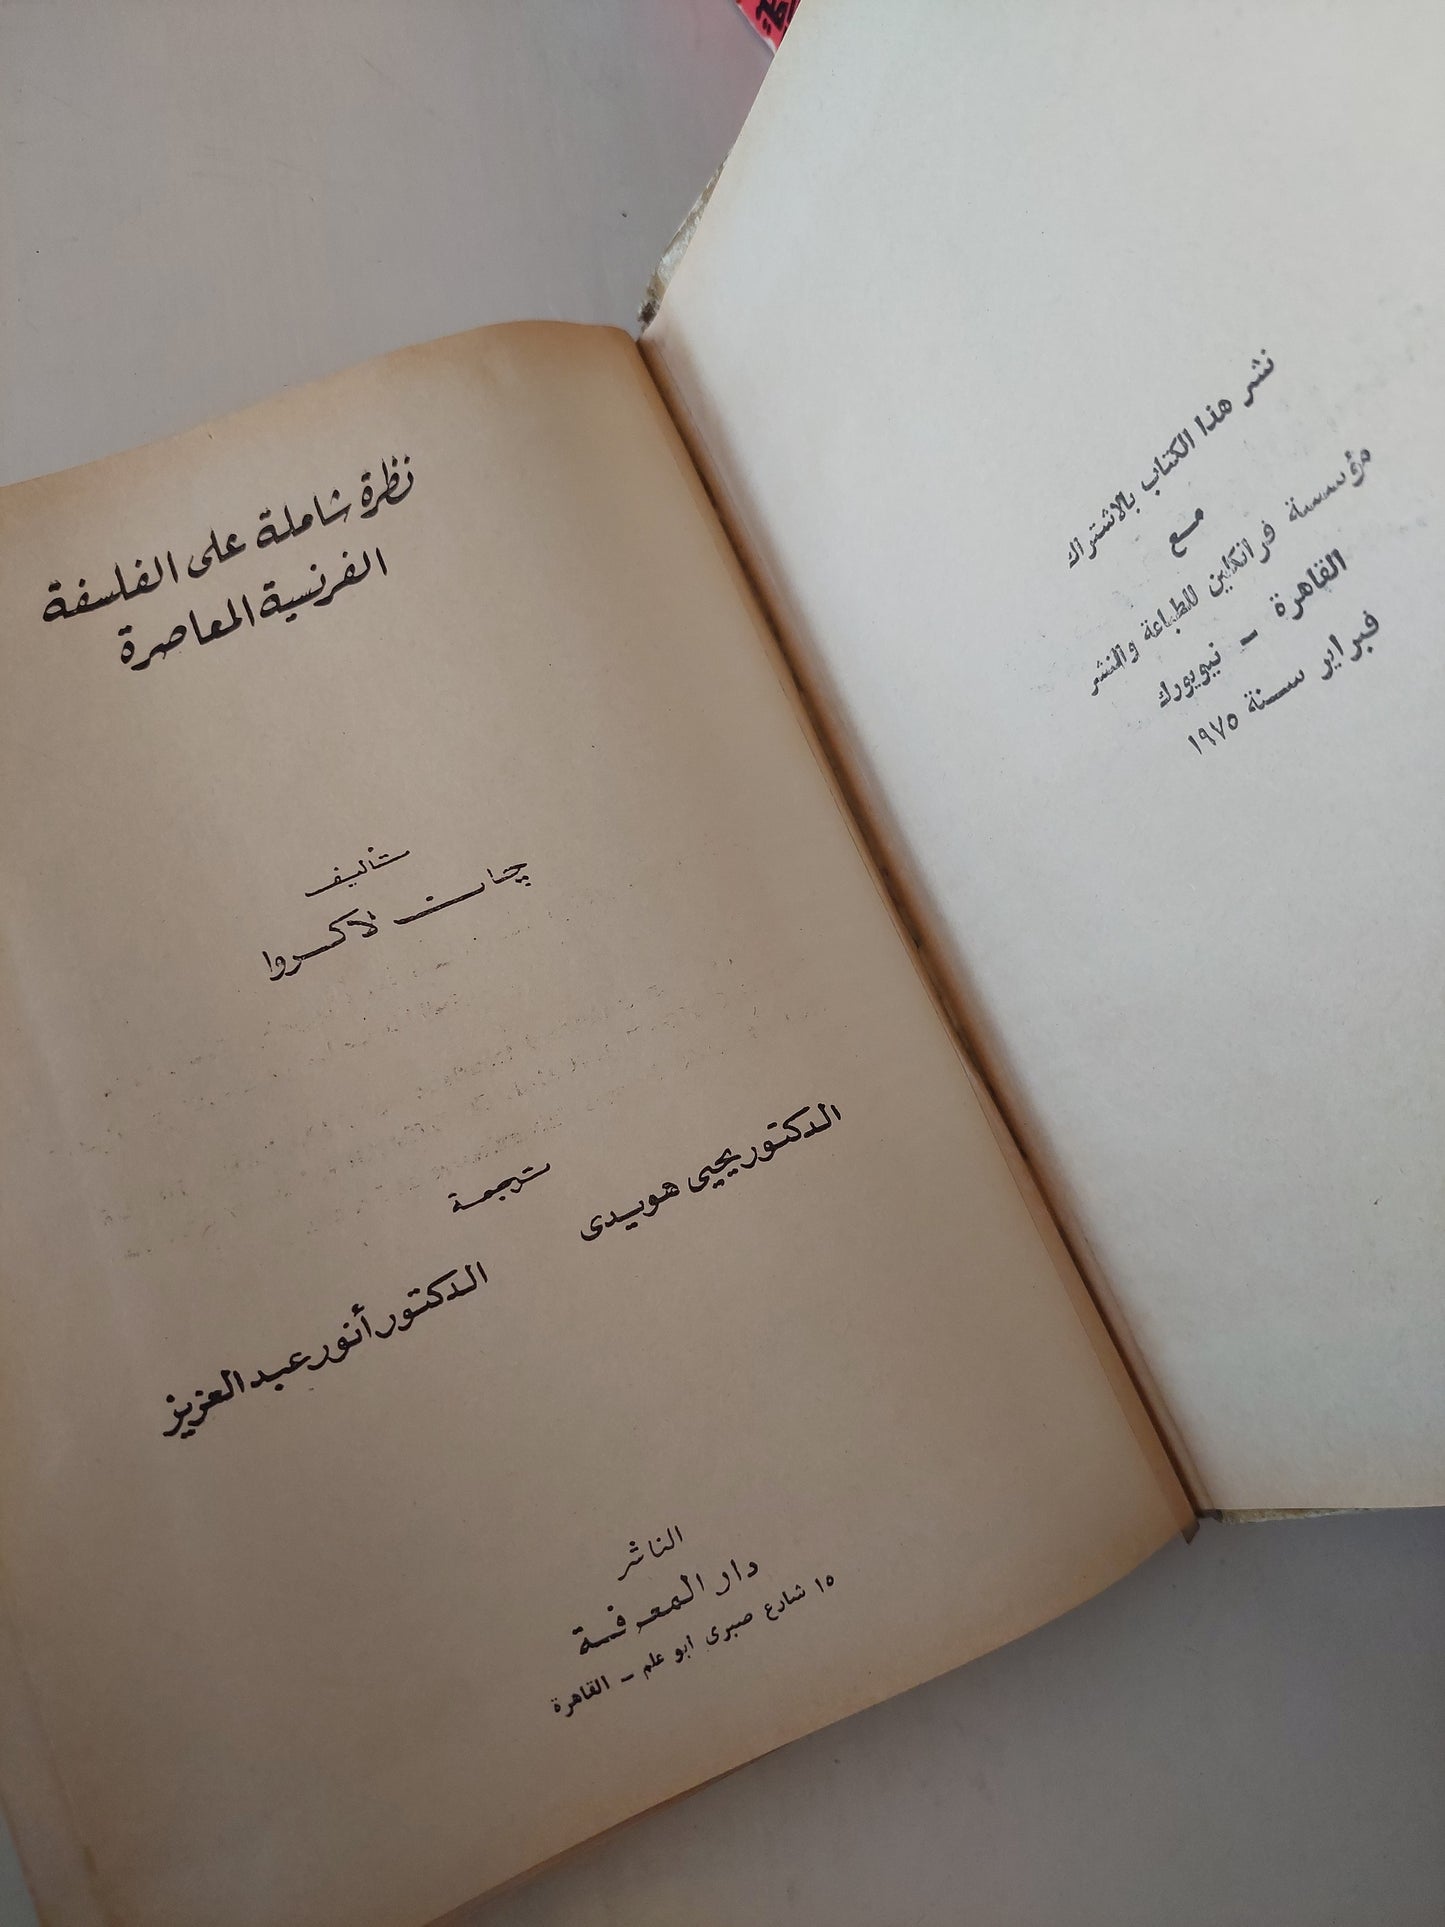 نشر هذا الكتاب بالاشتراك
مع
مؤسسة فرانكلين للطباعة والنشر
القاهرة – نيويورك
فبراير سنة ١٩٧٥
نظرة شاملة على الفلسفة
الفرنسية المعاصرة
تأليف
چان لاكروا
ترجمة
الدكتور يحيى هويدى
الدكتور أنور عبد العزيز
الناشر
دار المعرفة
١٥ شارع صبرى ابو علم – القاهرة